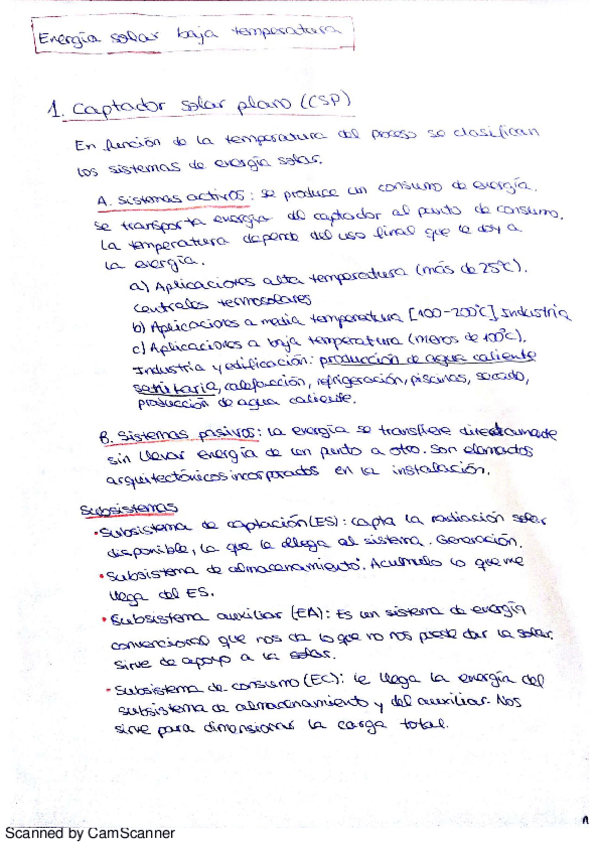 Energía solar baja temperatura
1. Captador solar plano (CSP)
En función de la temperatura del proceso se clasifican
los sistemas de energía solar.
A. Sistemas activos: se produce un consumo de energía.
Se transporta energía del captador al punto de consumo.
La temperatura depende del uso final que le doy a
la energía.
a) Aplicaciones alta temperatura (más de 25°C).
Centrales termosolares
b) Aplicaciones a media temperatura [100-200°C] Industria
c) Aplicaciones a baja temperatura (menos de 100°C).
Industria y edificación: producción de agua caliente
sanitaria, calefacción, refrigeración, piscinas, secado,
producción de agua caliente.
B. Sistemas pasivos: La energía se transfiere directamente
sin llevar energía de un punto a otro. Son elementos
arquitectónicos incorporados en la instalación.
Subsistemas
• Subsistema de captación (ES): capta la radiación solar
disponible, lo que le llega al sistema. Generación.
• Subsistema de almacenamiento: Acumulo lo que me
llega del ES.
• Subsistema auxiliar (EA): Es un sistema de energía
convencional que nos da lo que no nos puede dar la solar.
Sirve de apoyo a la solar.
• Subsistema de consumo (EC): le llega la energía del
subsistema de almacenamiento y del auxiliar. Nos
sirve para dimensionar la carga total.
Scanned by CamScanner